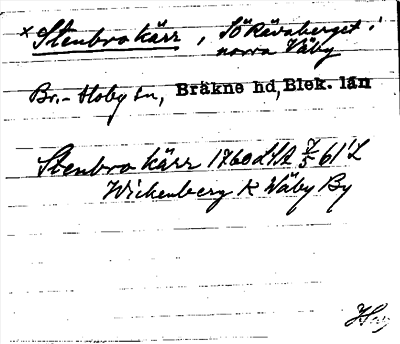 × Stenbro kärr, SÖ Rävaberget i
norra Väby
Br.-Hoby sn, Bräkne hd, Blek. län
Stenbro kärr 1760 LSA 7/5 61 L
Wickenberg K Wäby By